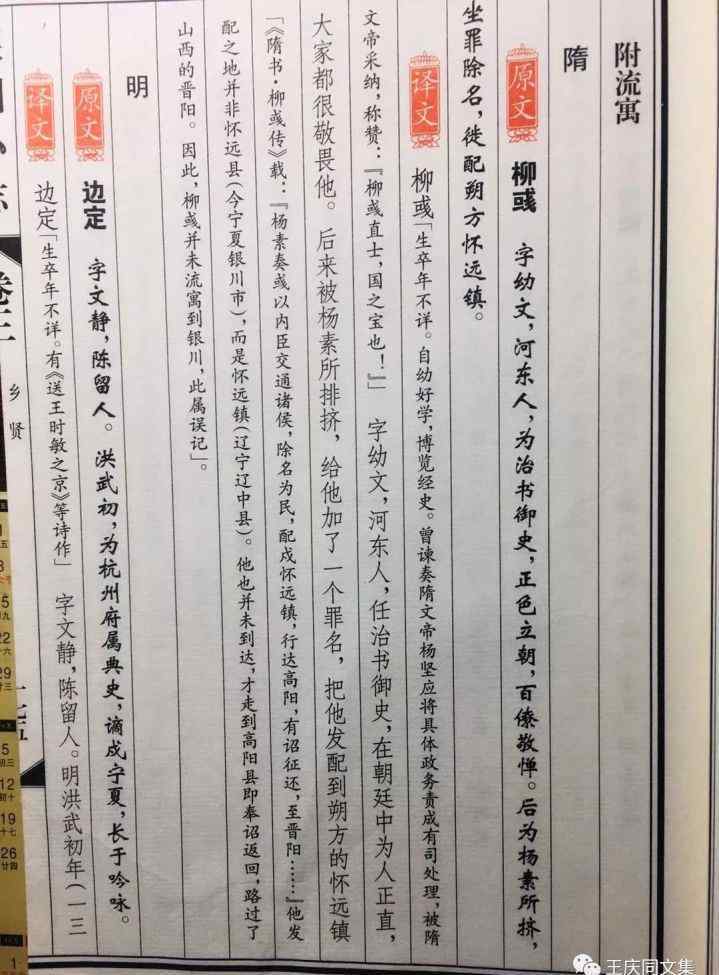 附流寓
隋
原文 柳彧 字幼文，河东人，为治书御史，正色立朝，百僚敬惮。后为杨素所挤，
坐罪除名，徙配朔方怀远镇。
译文 柳彧「生卒年不详。自幼好学，博览经史。曾谏奏隋文帝杨坚应将具体政务责成有司处理，被隋
文帝采纳，称赞：『柳彧直士，国之宝也！』」 字幼文，河东人，任治书御史，在朝廷中为人正直，
大家都很敬畏他。后来被杨素所排挤，给他加了一个罪名，把他发配到朔方的怀远镇
「《隋书·柳彧传》载：『杨素奏彧以内臣交通诸侯，除名为民，配戍怀远镇，行达高阳，有诏征还，至晋阳……』他发
配之地并非怀远县（今宁夏银川市），而是怀远镇（辽宁辽中县）。他也并未到达，才走到高阳县即奉诏返回，路过了
山西的晋阳。因此，柳彧并未流寓到银川，此属误记」。
明
原文 边定 字文静，陈留人。洪武初，为杭州府属典史，谪戍宁夏，长于吟咏。
译文 边定「生卒年不详。有《送王时敏之京》等诗作」 字文静，陈留人。明洪武初年（一三
卷二
乡贤
一七五
五
12
19
十七
26
廿四
1
王庆同文集